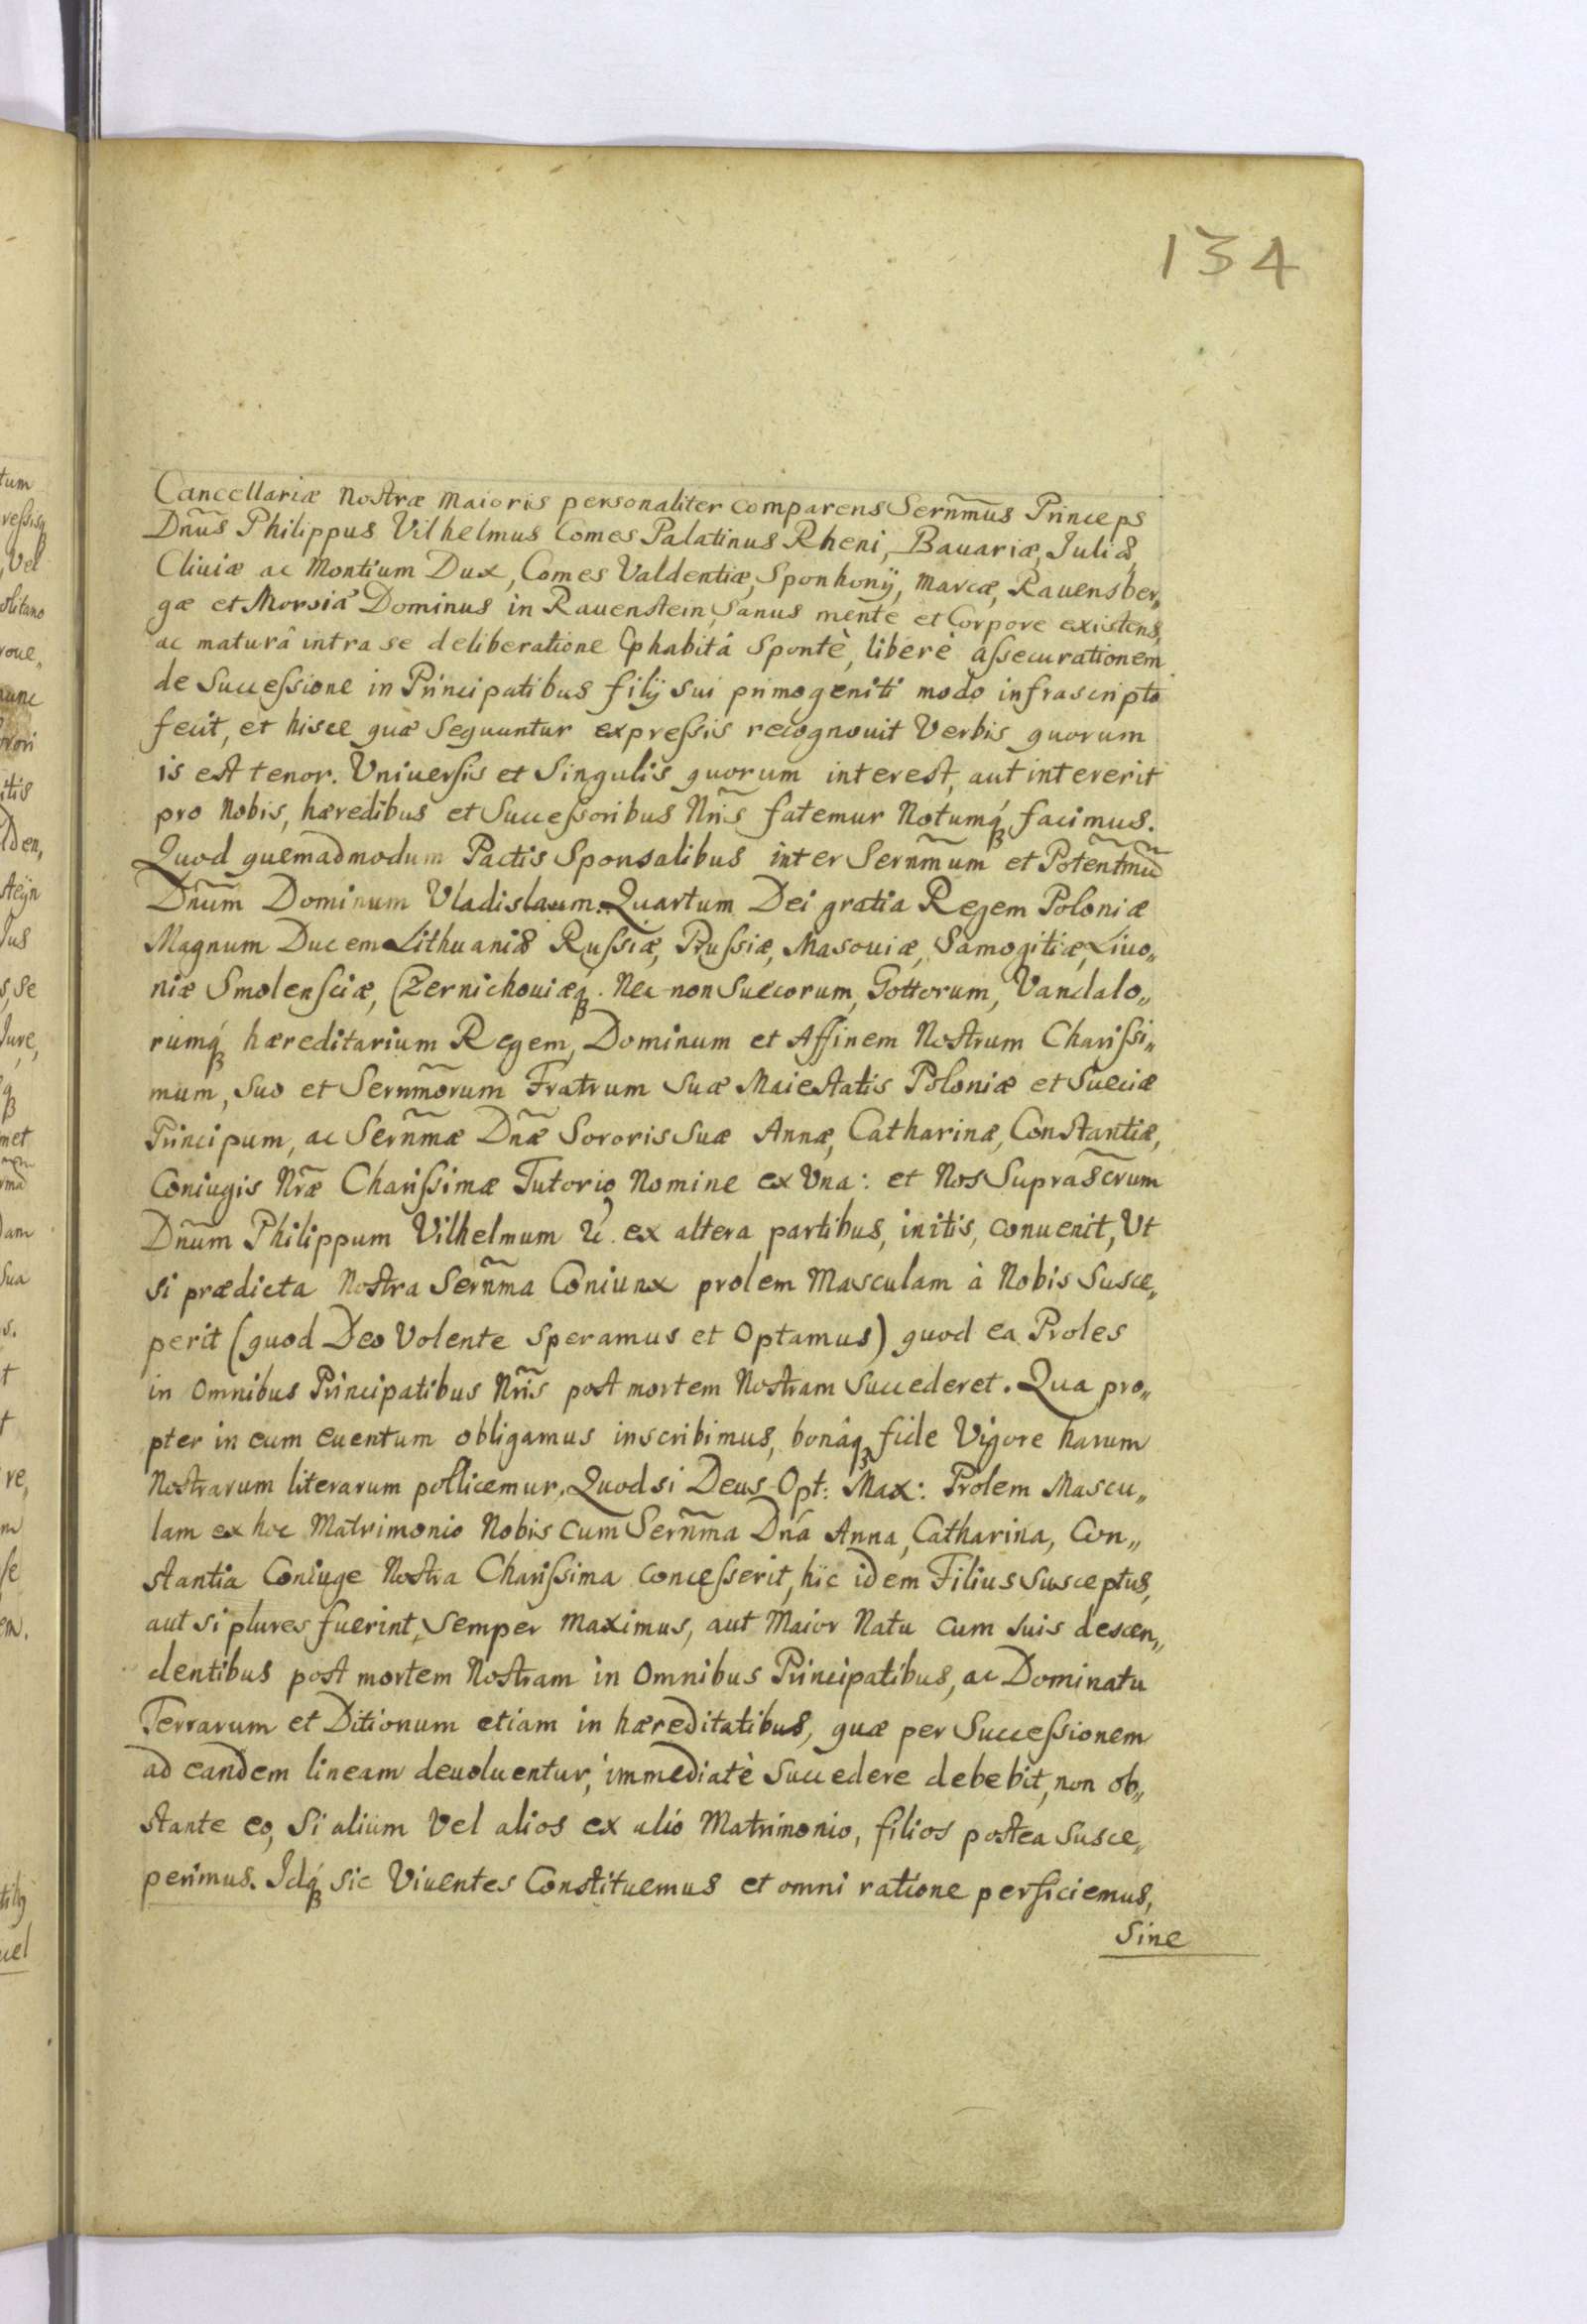 134
Cancellariæ Nostræ Maioris personaliter comparens Sern̄mus Princeps
Dn̄us Philippus Vilhelmus Comes Palatinus Rheni, Bauariæ, Juliæ,
Cliuiæ ac Montium Dux, Comes Valdentiæ, Sponhonÿ, Marcæ, Rauensber„
gæ et Morsiæ Dominus in Rauenstein, Sanus mente et Corpore existens,
ac maturâ intra se deliberatione præhabitâ Spontè, liberè assecurationem
de Successione in Principatibus filÿ sui primogeniti modo infrascripto
fecit, et hisce quæ Sequuntur expressis recognouit Verbis quorum
is est tenor. Vniuersis et Singulis quorum interest, aut intererit
pro Nobis, hæredibus et Successoribus Nr̄is fatemur Notumq́ʒ facimus.
Quod quemadmodum Pactis Sponsalibus inter Sern̄mum et Potentm̄ū
Dn̄um Dominum Vladislaum Quartum Dei gratia Regem Poloniæ
Magnum Ducem Lithuaniæ Russiæ, Prussiæ, Masouiæ, Samogitiæ, Liuo„
niæ Smolensciæ, Czernichouiæq́ʒ. Nec non Suecorum, Gottorum, Vandalo„
rumq́ʒ hæreditarium Regem, Dominum et Affinem Nostrum Charissi„
mum, Suo et Sern̄morum Fratrum Suæ Maiestatis Poloniæ et Sueciæ
Principum, ac Sern̄mæ Dn̄æ Sororis Suæ Annæ, Catharinæ, Constantiæ,
Coniugis Nr̄æ Charissimæ Tutorio Nomine ex Vna: et Nos Suprasc̄rum
Dn̄um Philippum Vilhelmum &c. ex altera partibus, initis, conuenit, Vt
si prædicta Nostra Sern̄ma Coniunx prolem Masculam à Nobis Susce„
perit (quod Deo Volente Speramus et Optamus) quod ea Proles
in Omnibus Principatibus Nr̄is post mortem Nostram Succederet. Qua pro„
pter in eum euentum obligamus inscribimus, bonâqʒ fide Vigore harum
Nostrarum literarum pollicemur. Quod si Deus Opt: Max: Prolem Mascu„
lam ex hoc Matrimonio Nobis cum Sern̄ma Dn̄a Anna, Catharina, Con„
stantia Coniuge Nostra Charissima concesserit, hîc idem Filius Susceptus,
aut si plures fuerint, Semper Maximus, aut Maior Natu cum suis descen„
dentibus post mortem Nostram in Omnibus Principatibus, ac Dominatu
Terrarum et Ditionum etiam in hæreditatibus, quæ per Successionem
ad eandem lineam deuoluentur, immediatè Succedere debebit, non ob„
stante eo, Si alium Vel alios ex alio Matrimonio, filios postea Susce„
perimus. Idq́ʒ sic Viuentes Constituemus et omni ratione perficiemus,
Sine